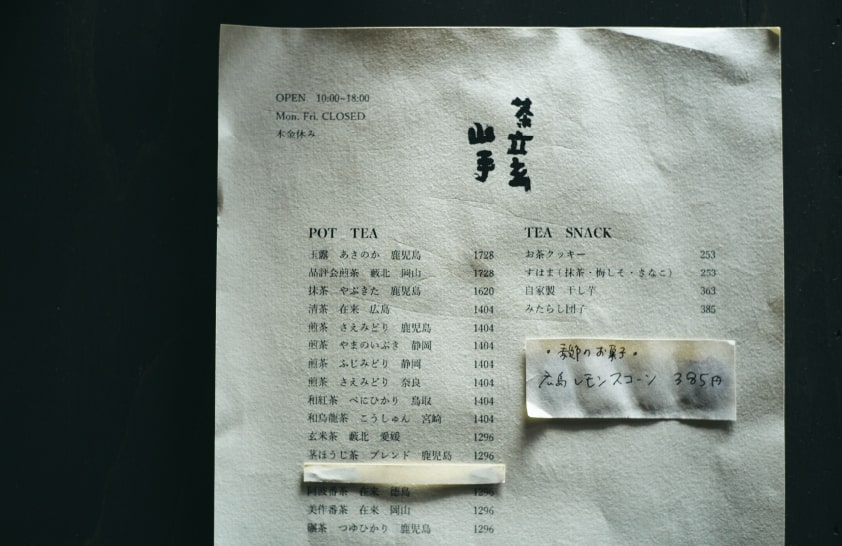 OPEN 10:00~18:00
Mon. Fri. CLOSED
木金休み
茶立玄
山手
POT TEA
玉露 あさのか 鹿児島 1728
品評会煎茶 藪北 岡山 1728
抹茶 やぶきた 鹿児島 1620
清茶 在来 広島 1404
煎茶 さえみどり 鹿児島 1404
煎茶 やまのいぶき 静岡 1404
煎茶 ふじみどり 静岡 1404
煎茶 さえみどり 奈良 1404
和紅茶 べにひかり 鳥取 1404
和烏龍茶 こうしゅん 宮崎 1404
玄米茶 藪北 愛媛 1296
茎ほうじ茶 ブレンド 鹿児島 1296
阿波番茶 在来 徳島 1296
美作番茶 在来 岡山 1296
碾茶 つゆひかり 鹿児島 1296
TEA SNACK
お茶クッキー 253
すはま(抹茶・梅しそ・きなこ) 253
自家製 干し芋 363
みたらし団子 385
・季節のお菓子・
広島レモンスコーン 385円